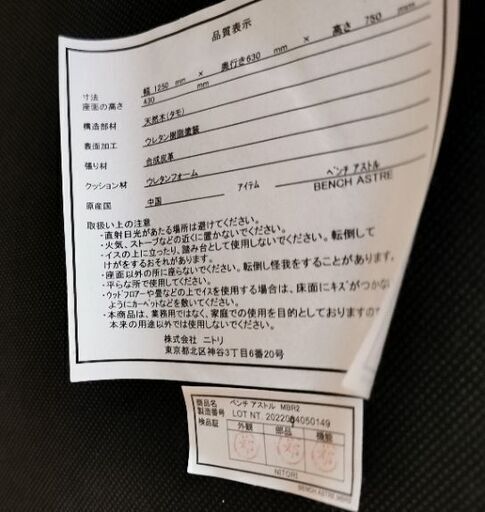 品質表示
寸法 幅 1250 mm × 奥行き630 mm × 高さ 750 mm
座面の高さ 430 mm
構造部材 天然木(タモ)
表面加工 ウレタン樹脂塗装
張り材 合成皮革
クッション材 ウレタンフォーム
原産国 中国 アイテム ベンチ アストル
BENCH ASTRE
取扱い上の注意
・直射日光があたる場所は避けてください。
・火気、ストーブなどの近くに置かないでください。
・イスの上に立ったり、踏み台として使用しないでください。転倒して
けがをするおそれがあります。
・座面以外の所に座らないでください。転倒し怪我をすることがあります。
・平らな所で使用してください。
・ウッドフロアーや畳などの上でイスを使用する場合は、床面にキズがつかな
ようにカーペットなどを敷いてください。
・本商品は、業務用ではなく、家庭での使用を目的としておりますので
本来の用途以外では使用しないでください。
株式会社 ニトリ
東京都北区神谷3丁目6番20号
商品名 ベンチ アストル MBR2
製造番号 LOT NT. 202204050149
検品証 外観 部品 機能
NITORI
BENCH ASTRE MBR2